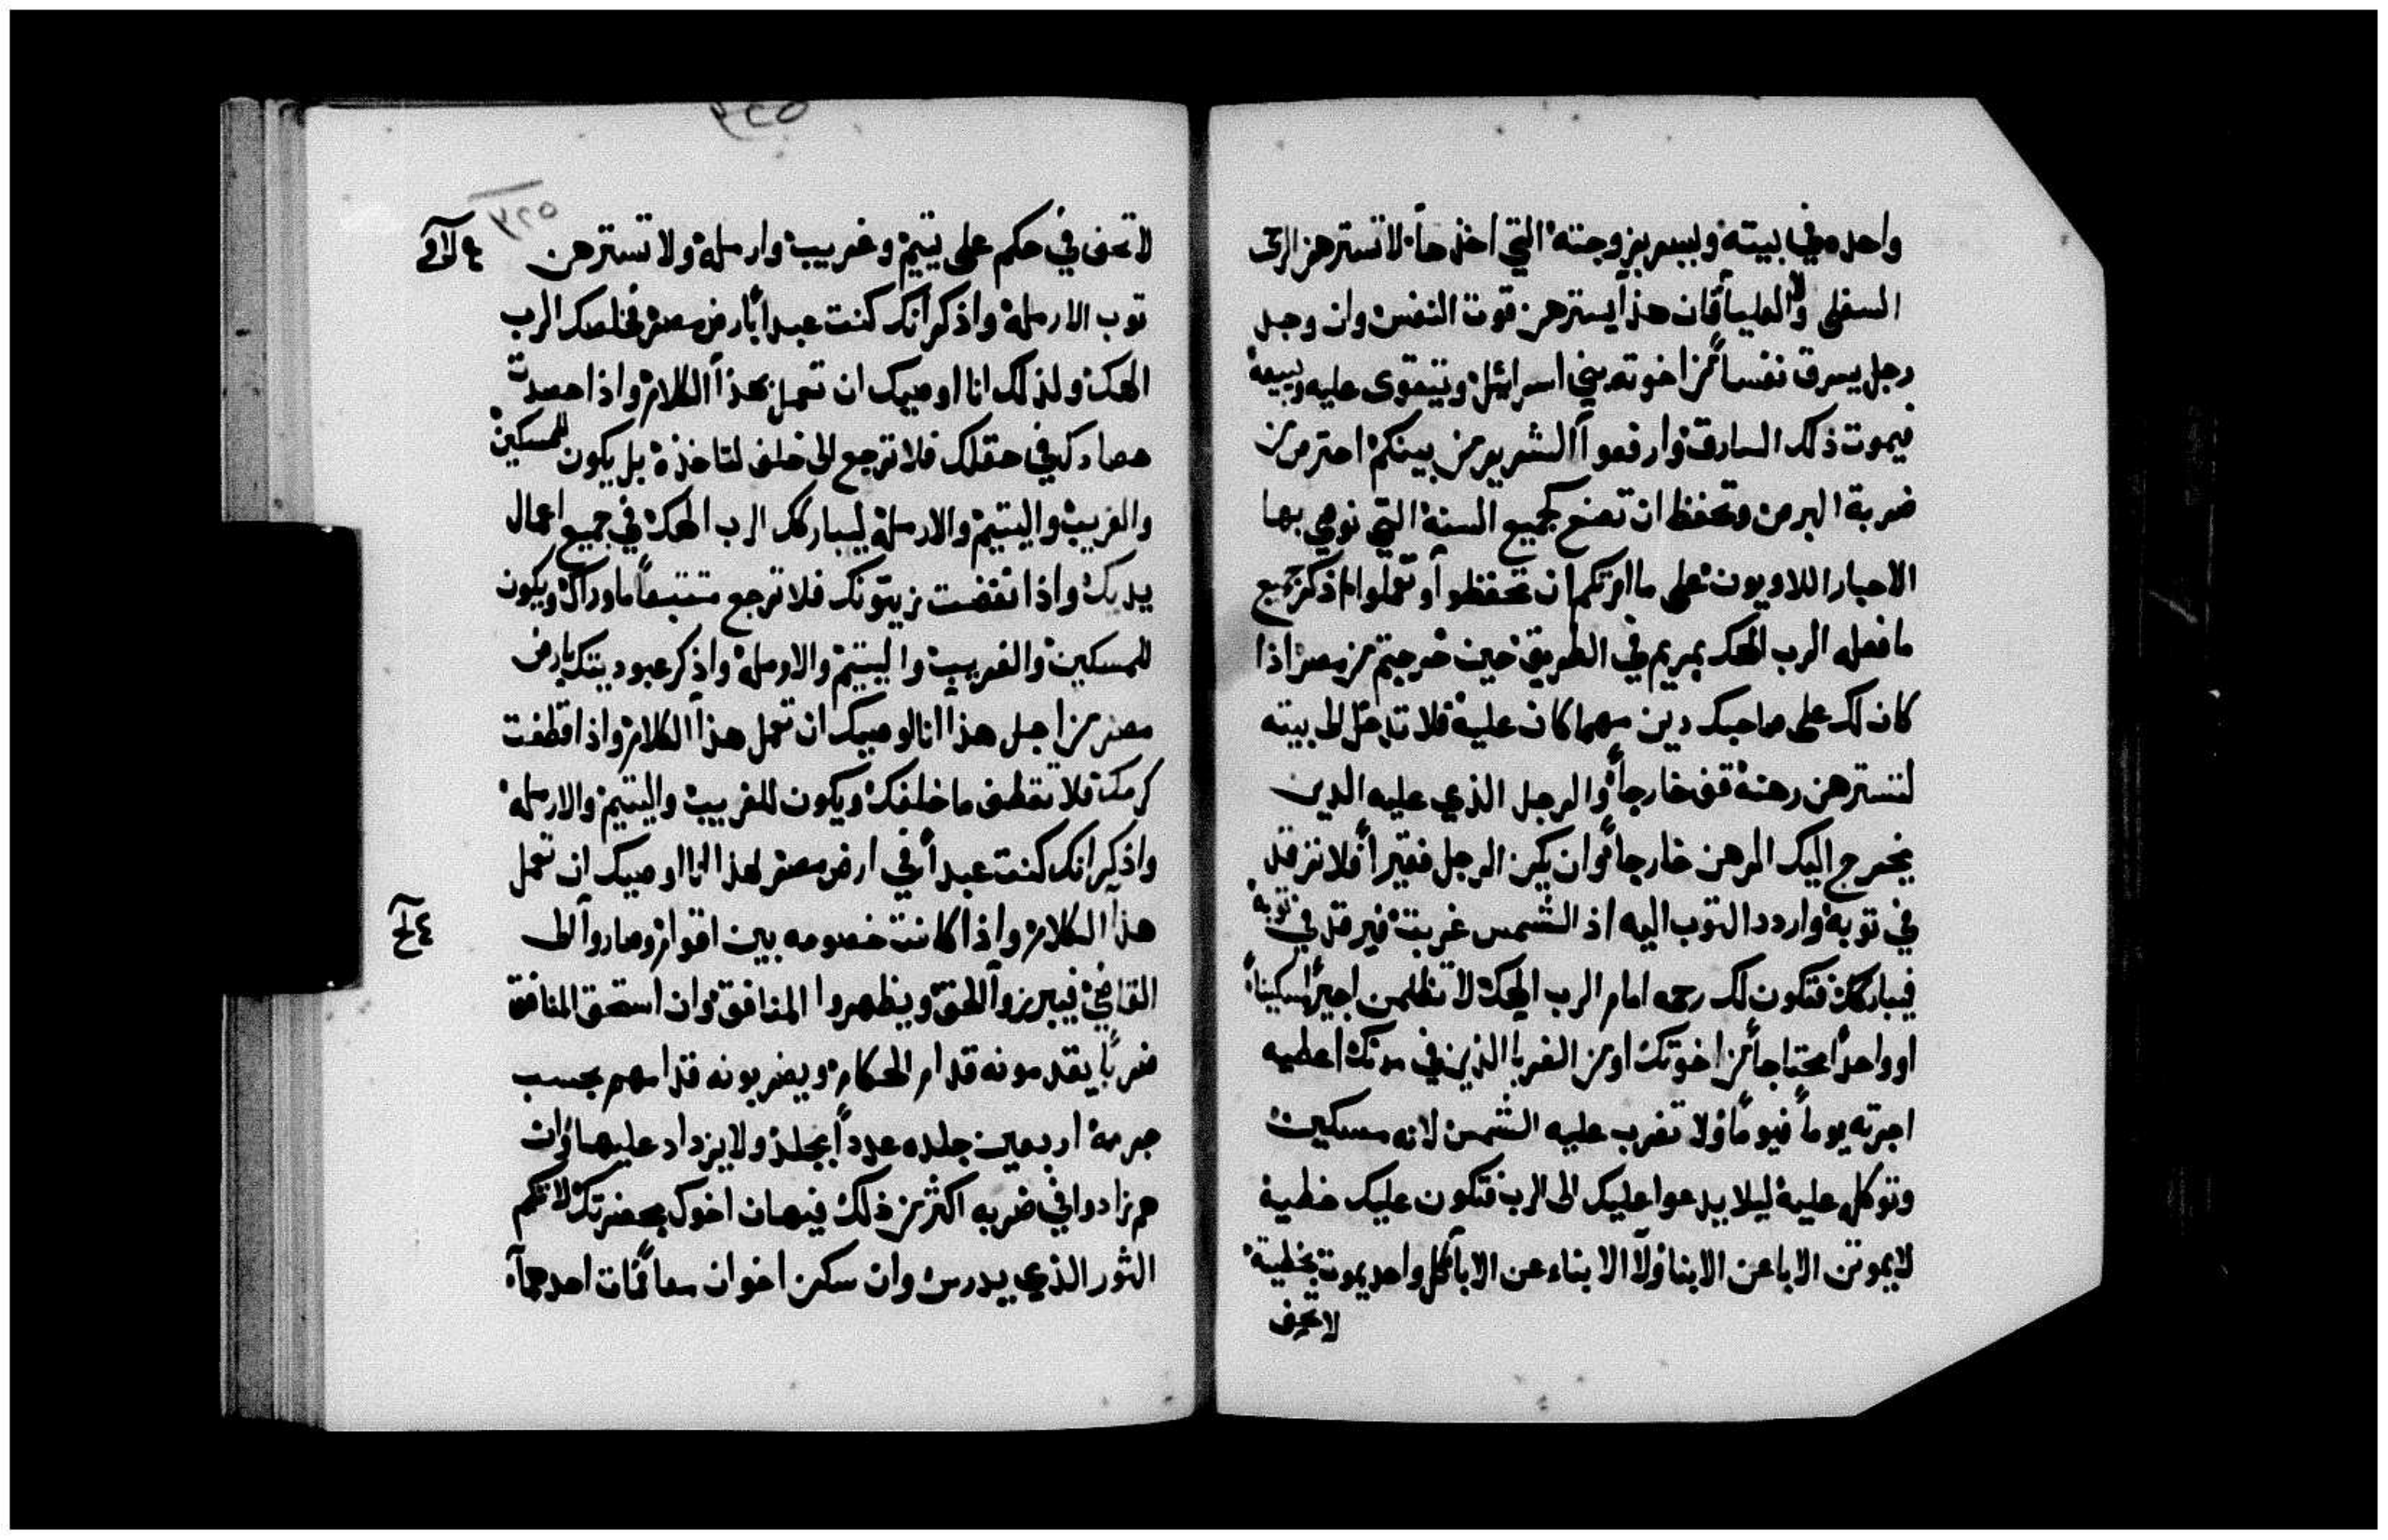 واحده في بيته ويسر بزوجته التي اخذها لا تسترهن الرحى
السفلى ولا العليا فان هذا يسترهن قوت النفس وان وجد
رجل يسرق نفسا من اخوته بني اسرائيل ويتقوى عليه ويبيعه
فيموت ذلك السارق وارفعوا الشرير من بينكم احترص من
ضربة البرص وتحفظ ان تصنع كجميع السنة التي نوصي بها
الاحبار اللاويون على ما امرتكم ان تحفظوا وتعملوا اذكر جميع
ما فعله الرب الهك بمريم في الطريق حين خرجتم من مصر اذا
كان لك على صاحبك دين مهما كان عليه فلا تدخل الى بيته
لتسترهن رهنه قف خارجا والرجل الذي عليه الدين
يخرج اليك الرهن خارجا وان يكن الرجل فقيرا فلا ترقد
في توبه واردد التوب اليه اذ الشمس غربت فيرقد في توبه
فيباركك فتكون لك رحمه امام الرب الهك لا تظلمن اجيرا مسكينا
او واحدا محتاجا من اخوتك او من الغربا الذين في مدنك اعطيه
اجرته يوما فيوما ولا تغرب عليه الشمس لانه مسكين
وتوكل عليه ليلا يدعوا عليك الى الرب فتكون عليك خطية
لا يموتن الابا عن الابنا ولا الابناء عن الابا كل واحد يموت بخطيته
لا تحف
٣٢٥
٣٢٥
لا تحف في حكم على يتيم وغريب وارمله ولا تسترهن
توب الارمله واذكر انك كنت عبدا بارض مصر فخلصك الرب
الهك ولذلك انا اوصيك ان تعمل بهذا الكلام واذا حصدت
حصادك في حقلك فلا ترجع الى خلف لتاخذه بل يكون للمسكين
والغريب واليتيم والارمله ليباركك الرب الهك في جميع اعمال
يديك واذا نفضت زيتونك فلا ترجع متتبعا ما وراك ويكون
للمسكين والغريب واليتيم والارمله واذكر عبوديتك بارض
مصر من اجل هذا انا اوصيك ان تعمل هذا الكلام واذا قطفت
كرمك فلا تقطف ما خلفك ويكون للغريب واليتيم والارمله
واذكر انك كنت عبدا في ارض مصر لهذا انا اوصيك ان تعمل
هذا الكلام واذا كانت خصومه بين اقوام وصاروا الى
القاضي فيبرروا الحق ويظهروا المنافق وان استحق المنافق
ضربا يقدمونه قدام الحكام ويضربونه قدامهم بحسب
جرمه اربعين جلده عددا يجلد ولا يزداد عليها وان
هم زادوا في ضربه اكثر من ذلك فيهان اخوك بحضرتك لا تكم
الثور الذي يدرس وان سكن اخوان معا فمات احدهما